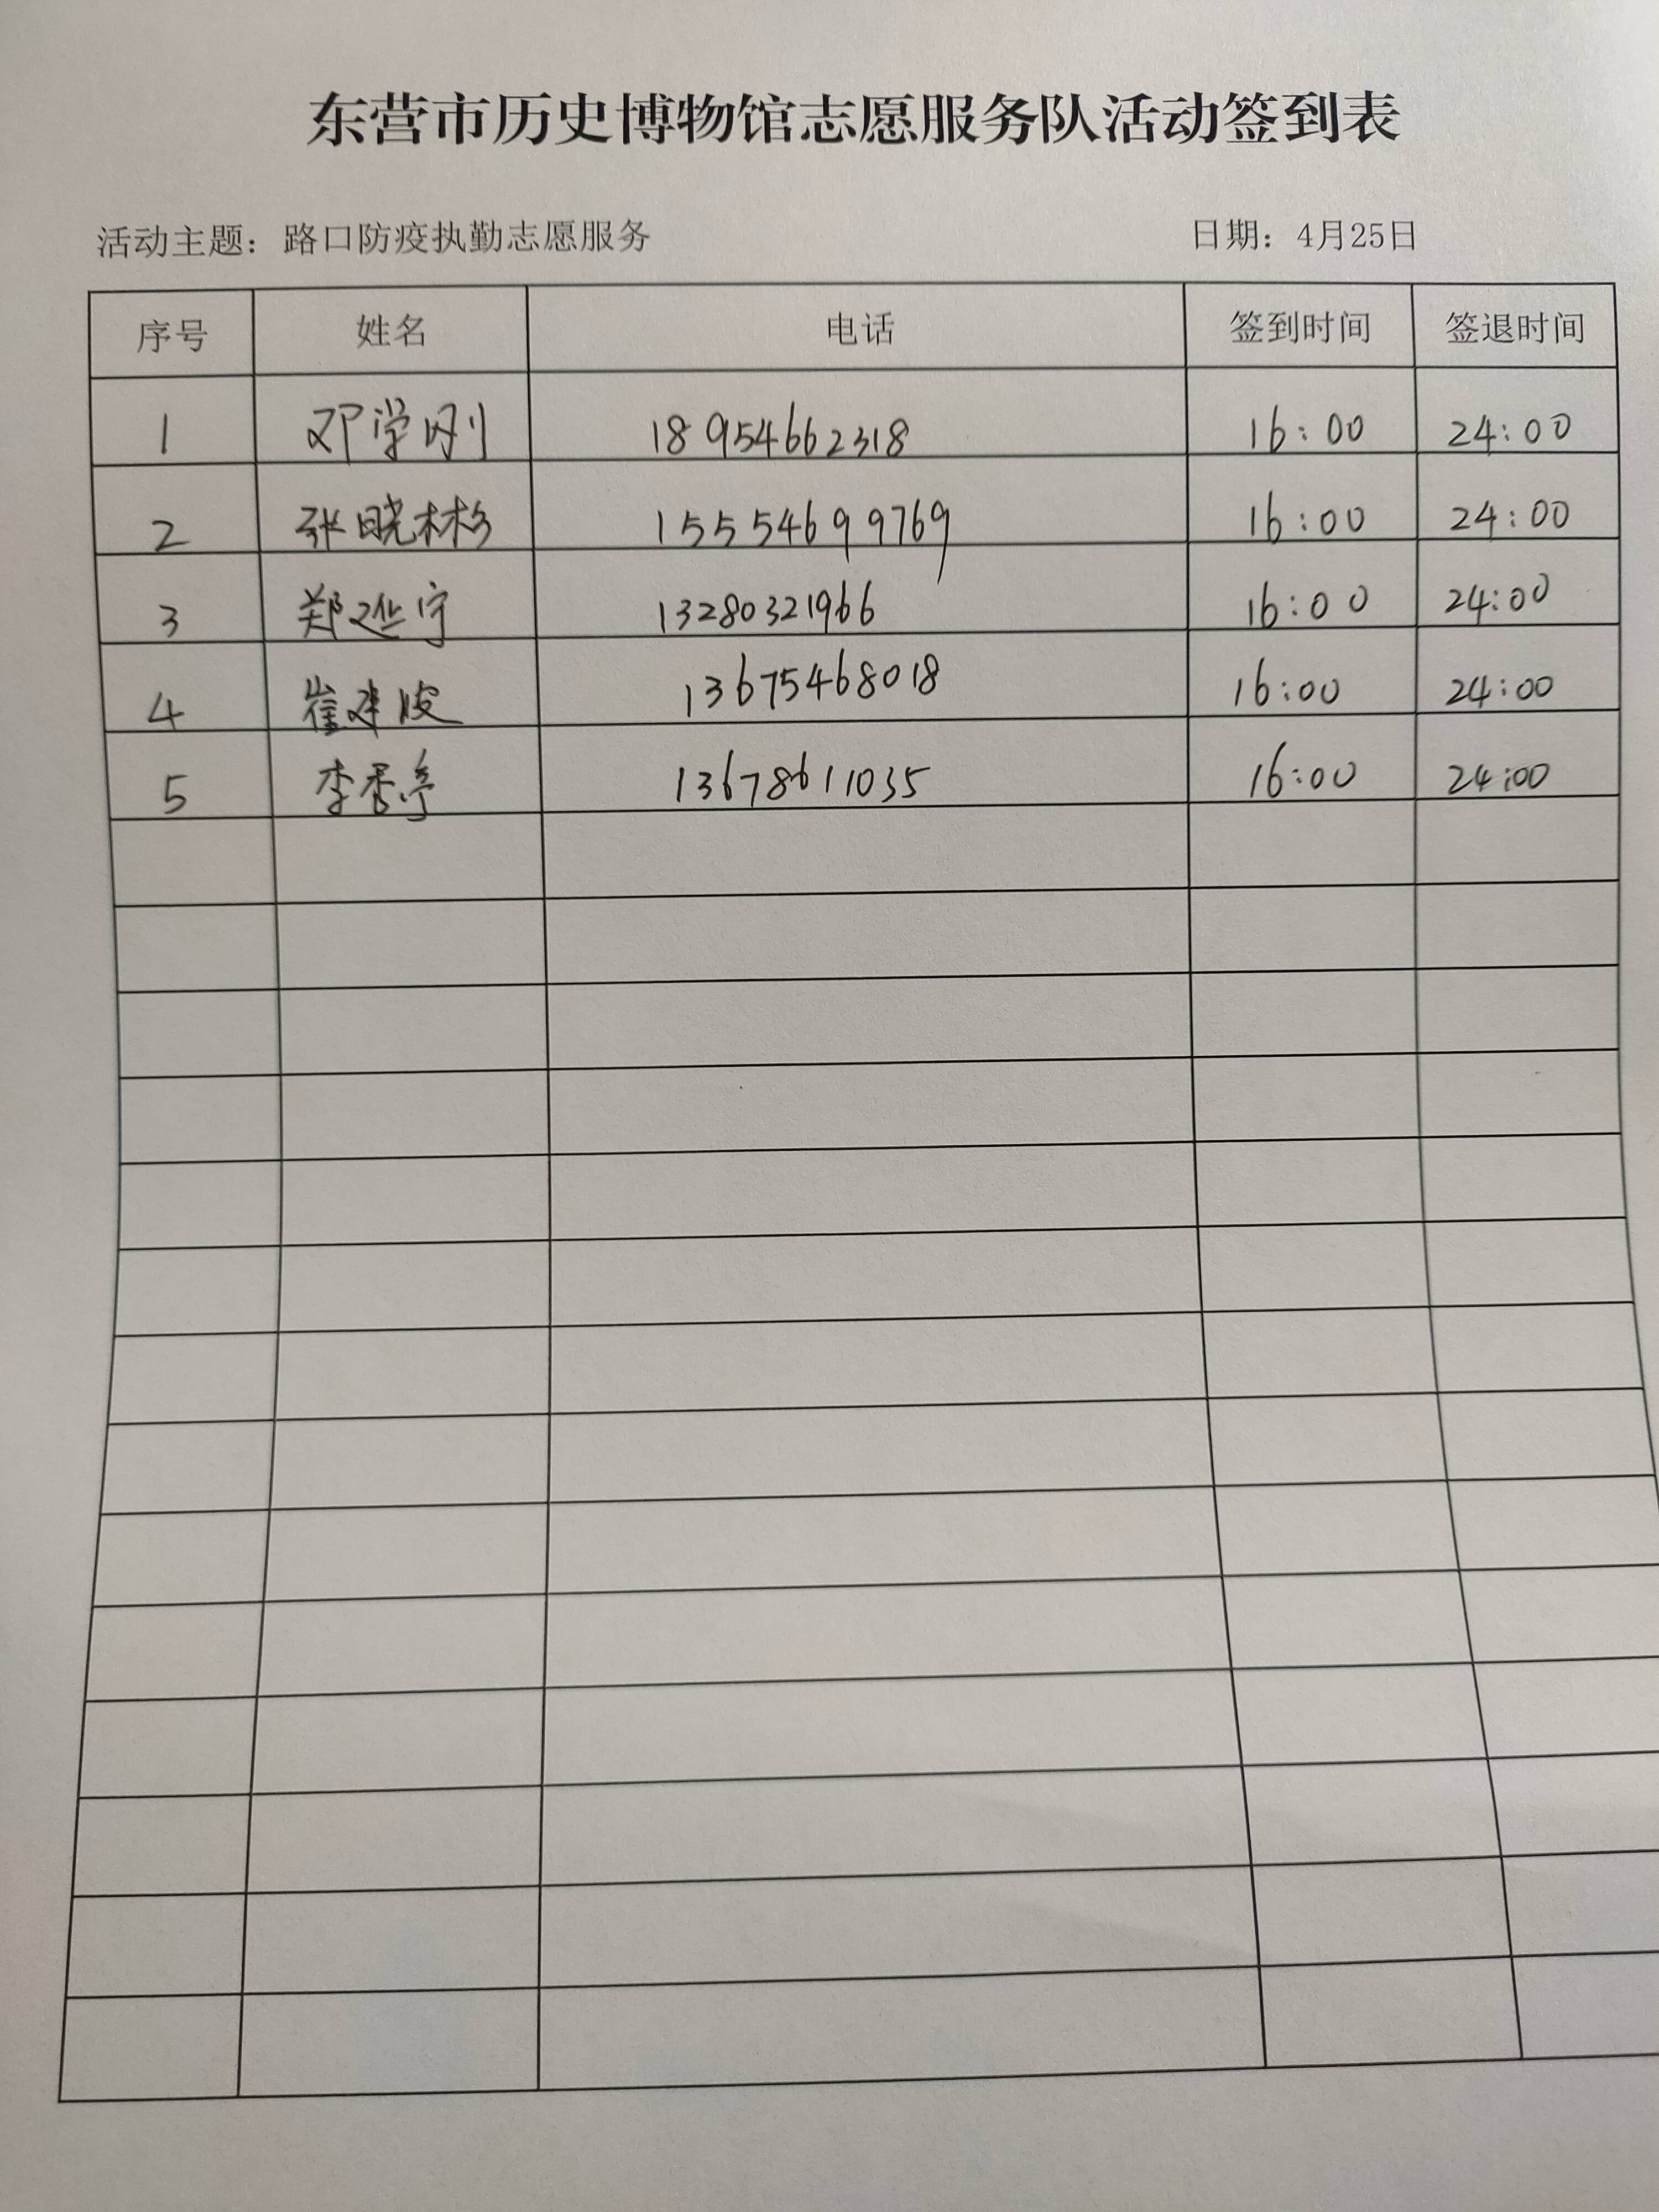 东营市历史博物馆志愿服务队活动签到表
活动主题：路口防疫执勤志愿服务 日期：4月25日
序号 姓名 电话 签到时间 签退时间
1 邓学刚 18954662318 16:00 24:00
2 张晓彬 15554699769 16:00 24:00
3 郑 宁 13280321966 16:00 24:00
4 崔建波 13675468018 16:00 24:00
5 李秀亭 13678611035 16:00 24:00